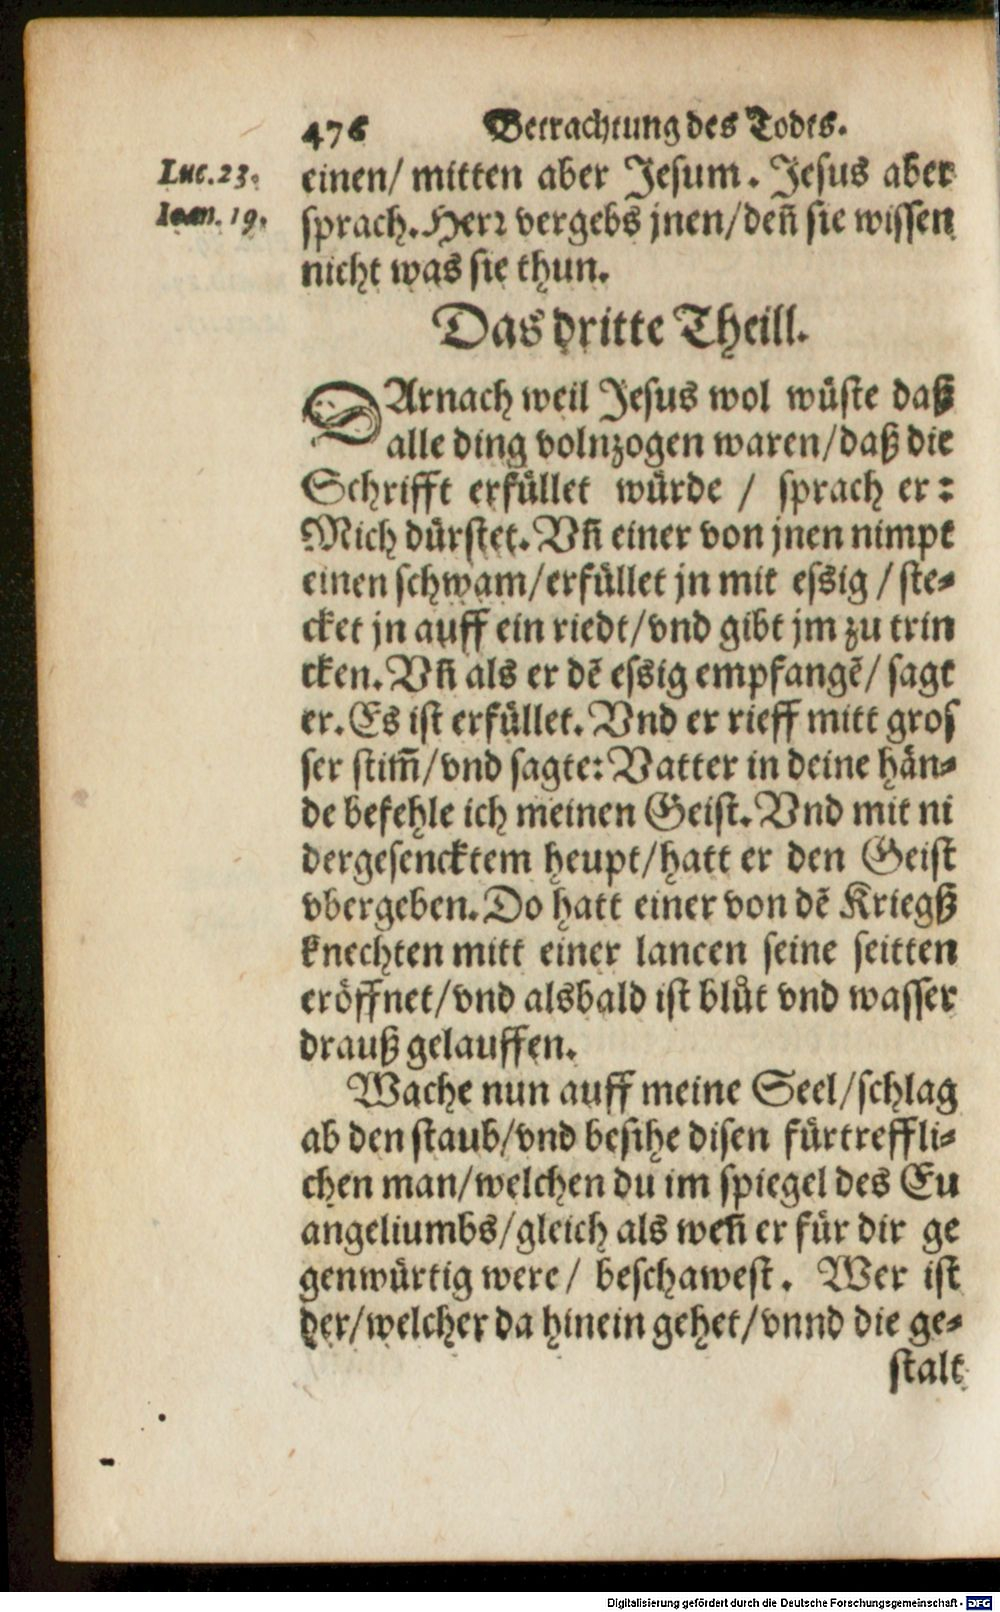 476 Betrachtung des Todes.
Luc. 23. einen/ mitten aber Jesum. Jesus aber
Ioan. 19. sprach. Herꝛ vergebs jnen/deñ sie wissen
nicht was sie thun.
Das dritte Theill.
DArnach weil Jesus wol wüste daß
alle ding volnzogen waren/daß die
Schrifft erfüllet würde / sprach er:
Mich dürstet. Vñ einer von jnen nimpt
einen schwam/erfüllet jn mit essig / ste-
cket jn auff ein riedt/vnd gibt jm zu trin
cken. Vñ als er dẽ essig empfangẽ/ sagt
er. Es ist erfüllet. Vnd er rieff mitt gros
ser stim̃/vnd sagte: Vatter in deine hän-
de befehle ich meinen Geist. Vnd mit ni
dergesencktem heupt/hatt er den Geist
vbergeben. Do hatt einer von dẽ Kriegß
knechten mitt einer lancen seine seitten
eröffnet/vnd alsbald ist blůt vnd wasser
drauß gelauffen.
Wache nun auff meine Seel/schlag
ab den staub/vnd besihe disen fürtreffli-
chen man/welchen du im spiegel des Eu
angeliumbs/gleich als weñ er für dir ge
genwürtig were/ beschawest. Wer ist
der/welcher da hinein gehet/vnnd die ge-
stalt
Digitalisierung gefördert durch die Deutsche Forschungsgemeinschaft - DFG